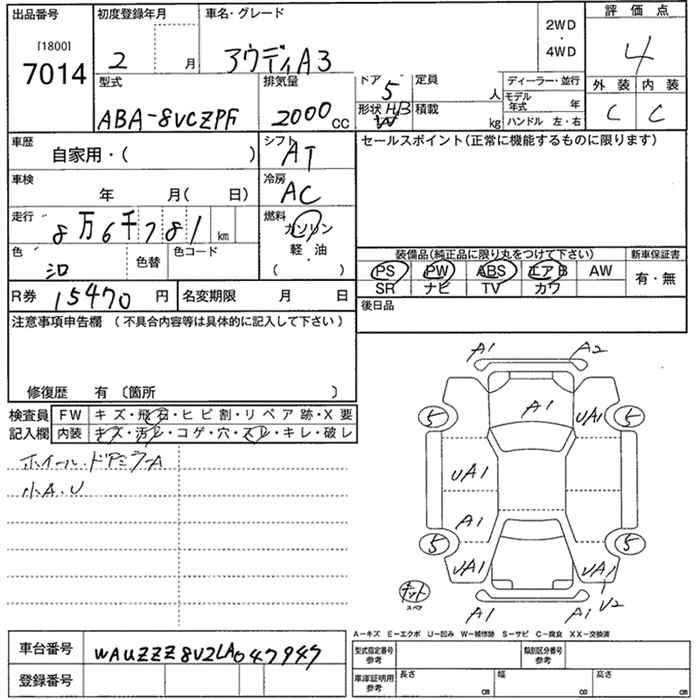 出品番号
[1800]
7014
初度登録年月
2 月
車名・グレード
アウディA3
2WD
・
4WD
評価点
4
外装 内装
C C
型式
ABA-8VCZPF
排気量
2000cc
ドア 5
定員 人
形状 H/B W
積載 kg
ディーラー・並行
モデル年式 年
ハンドル 左・右
車歴
自家用・( )
シフト
AT
セールスポイント(正常に機能するものに限ります)
車検
年 月( 日)
冷房
AC
走行
8万6千781km
燃料
ガソリン
軽・油
( ・ )
色
色替
色コード
装備品(純正品に限り丸をつけて下さい)
新車保証書
PS PW ABS エアB AW
SR ナビ TV カワ
有・無
R券 15470円
名変期限 月 日
後日品
注意事項申告欄(不具合内容等は具体的に記入して下さい)
修復歴 有〔箇所 〕
検査員
記入欄
FW キズ・飛石・ヒビ割・リペア跡・X要
内装 キズ・汚レ・コゲ・穴・スレ・キレ・破レ
ホイール・ドアミラーA
小A.U
A1 A2
A1
5 UA1 5
UA1
A1
5 5
UA1 UA1
U2
スペア
A1 A1
A-キズ E-エクボ U-凹み W-補修跡 S-サビ C-腐食 XX-交換済
車台番号
WAUZZZ8V2LA047947
登録番号
型式指定番号
参考
類別区分番号
参考
車庫証明用
参考
長さ cm
幅 cm
高さ cm